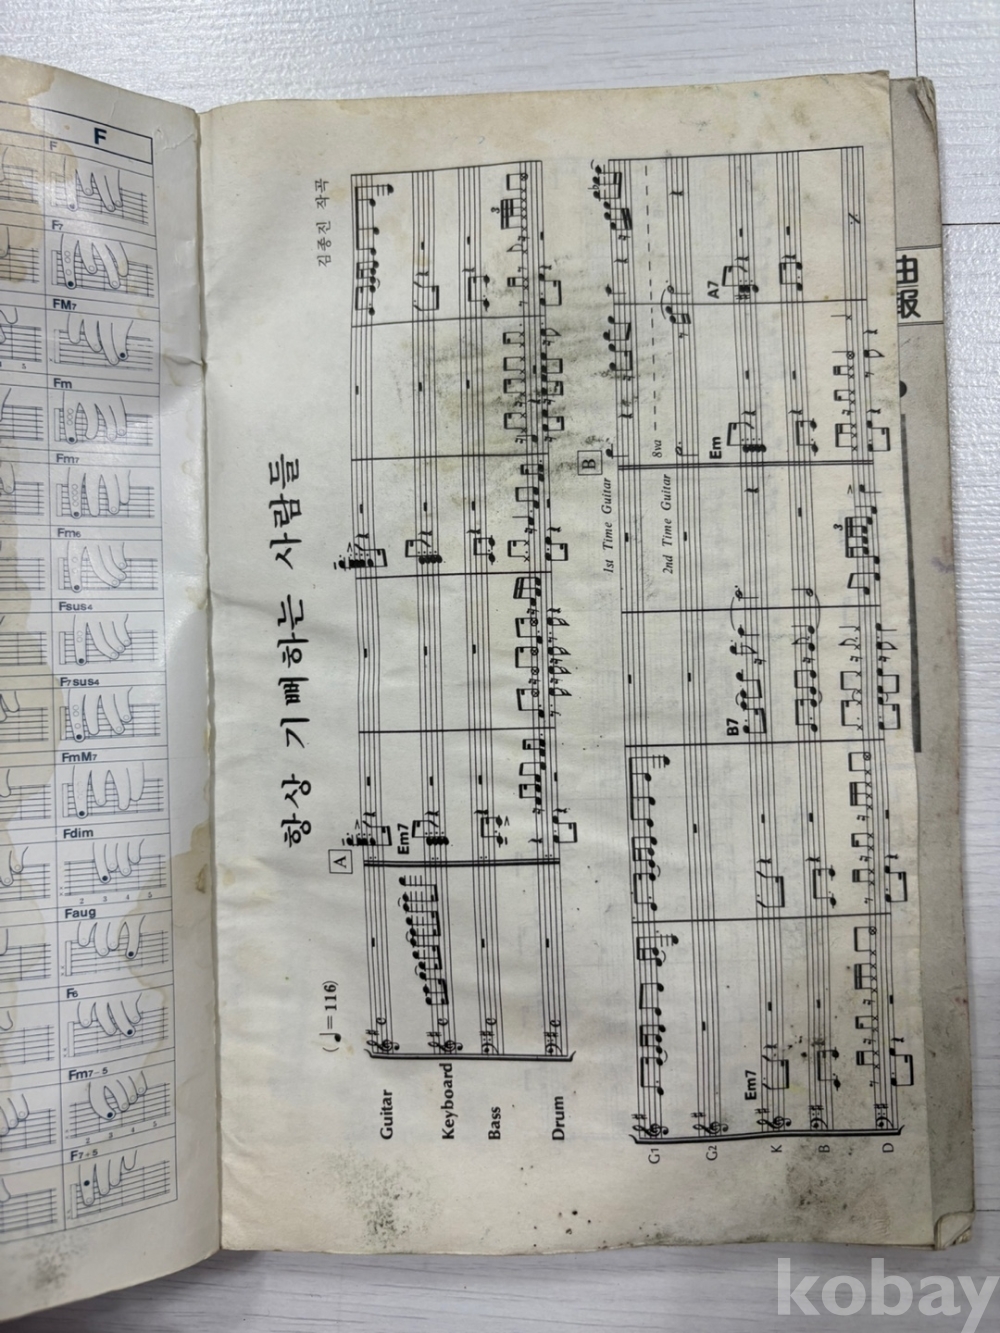 F
F
F7
FM7
Fm
Fm7
Fm6
Fsus4
F7sus4
FmM7
Fdim
2 3 4 5
Faug
F6
Fm7-5
2 3 4 5
F7-5
항상 기뻐하는 사람들
김종진 작곡
(♩=116)
A
Em7
Guitar
Keyboard
Bass
Drum
3
B
1st Time Guitar
8va
2nd Time Guitar
Em7
B7
Em
A7
3
G1
G2
K
B
D
曲
報
kobay